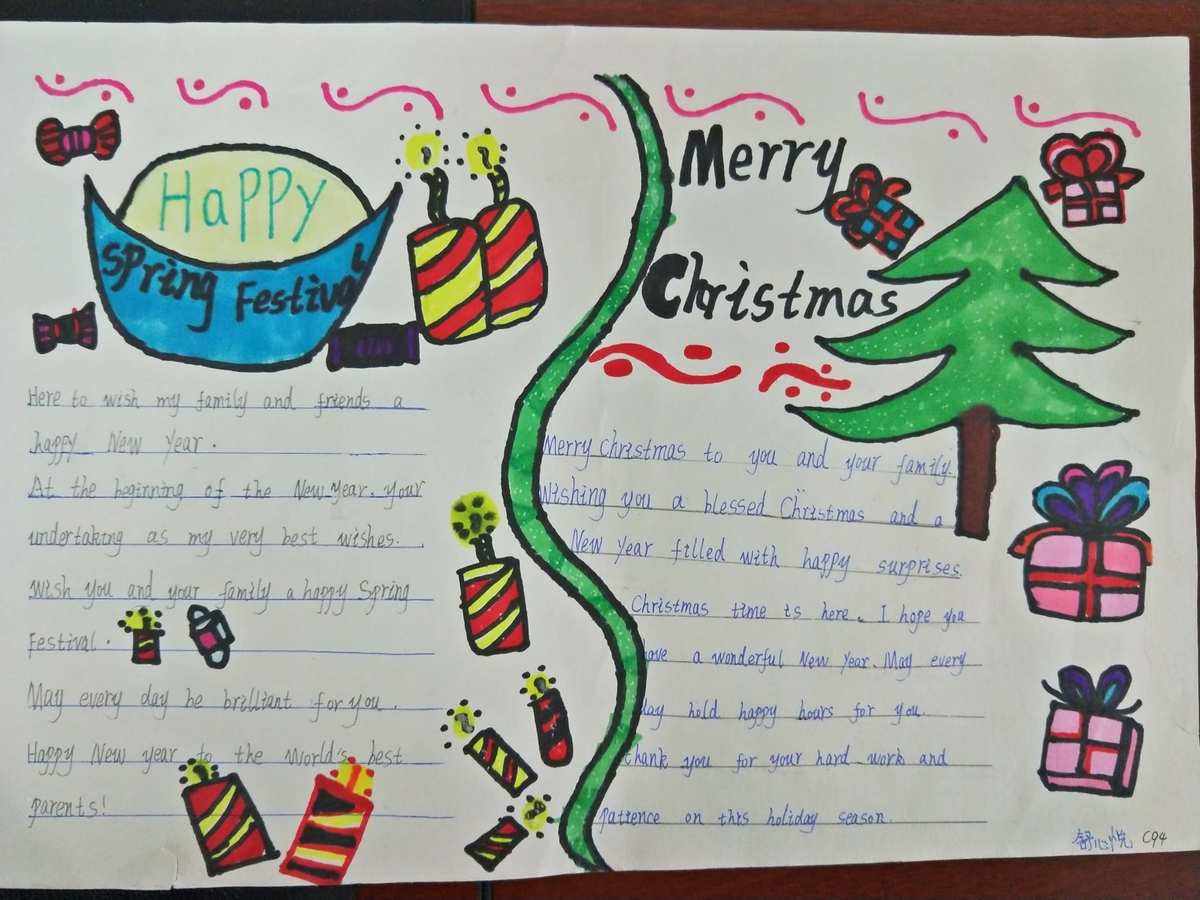 Happy
Spring Festival
Here to wish my family and friends a
happy New Year.
At the beginning of the New Year. your
undertaking as my very best wishes.
Wish you and your family a happy Spring
Festival.
May every day be brilliant for you.
Happy New year to the world's best
parents!
Merry
Christmas
Merry Christmas to you and your family.
Wishing you a blessed Christmas and a
New Year filled with happy surprises.
Christmas time is here. I hope you
have a wonderful New Year. May every
day hold happy hours for you.
thank you for your hard work and
patience on this holiday season.
舒心悦 C94